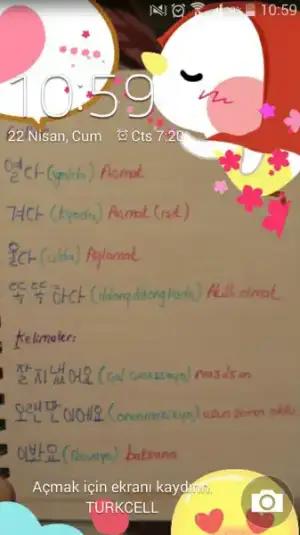 10:59
10:59
22 Nisan, Cum Cts 7:20
열다 (yolda) Açmak
켜다 (kyoda) Açmak (ışık)
울다 (ulda) Ağlamak
똑똑하다 Akıllı olmak
Kelimeler:
잘 지냈어요 nasılsın
오랜만이에요 uzun zaman oldu
이봐요 baksana
Açmak için ekranı kaydırın.
TURKCELL